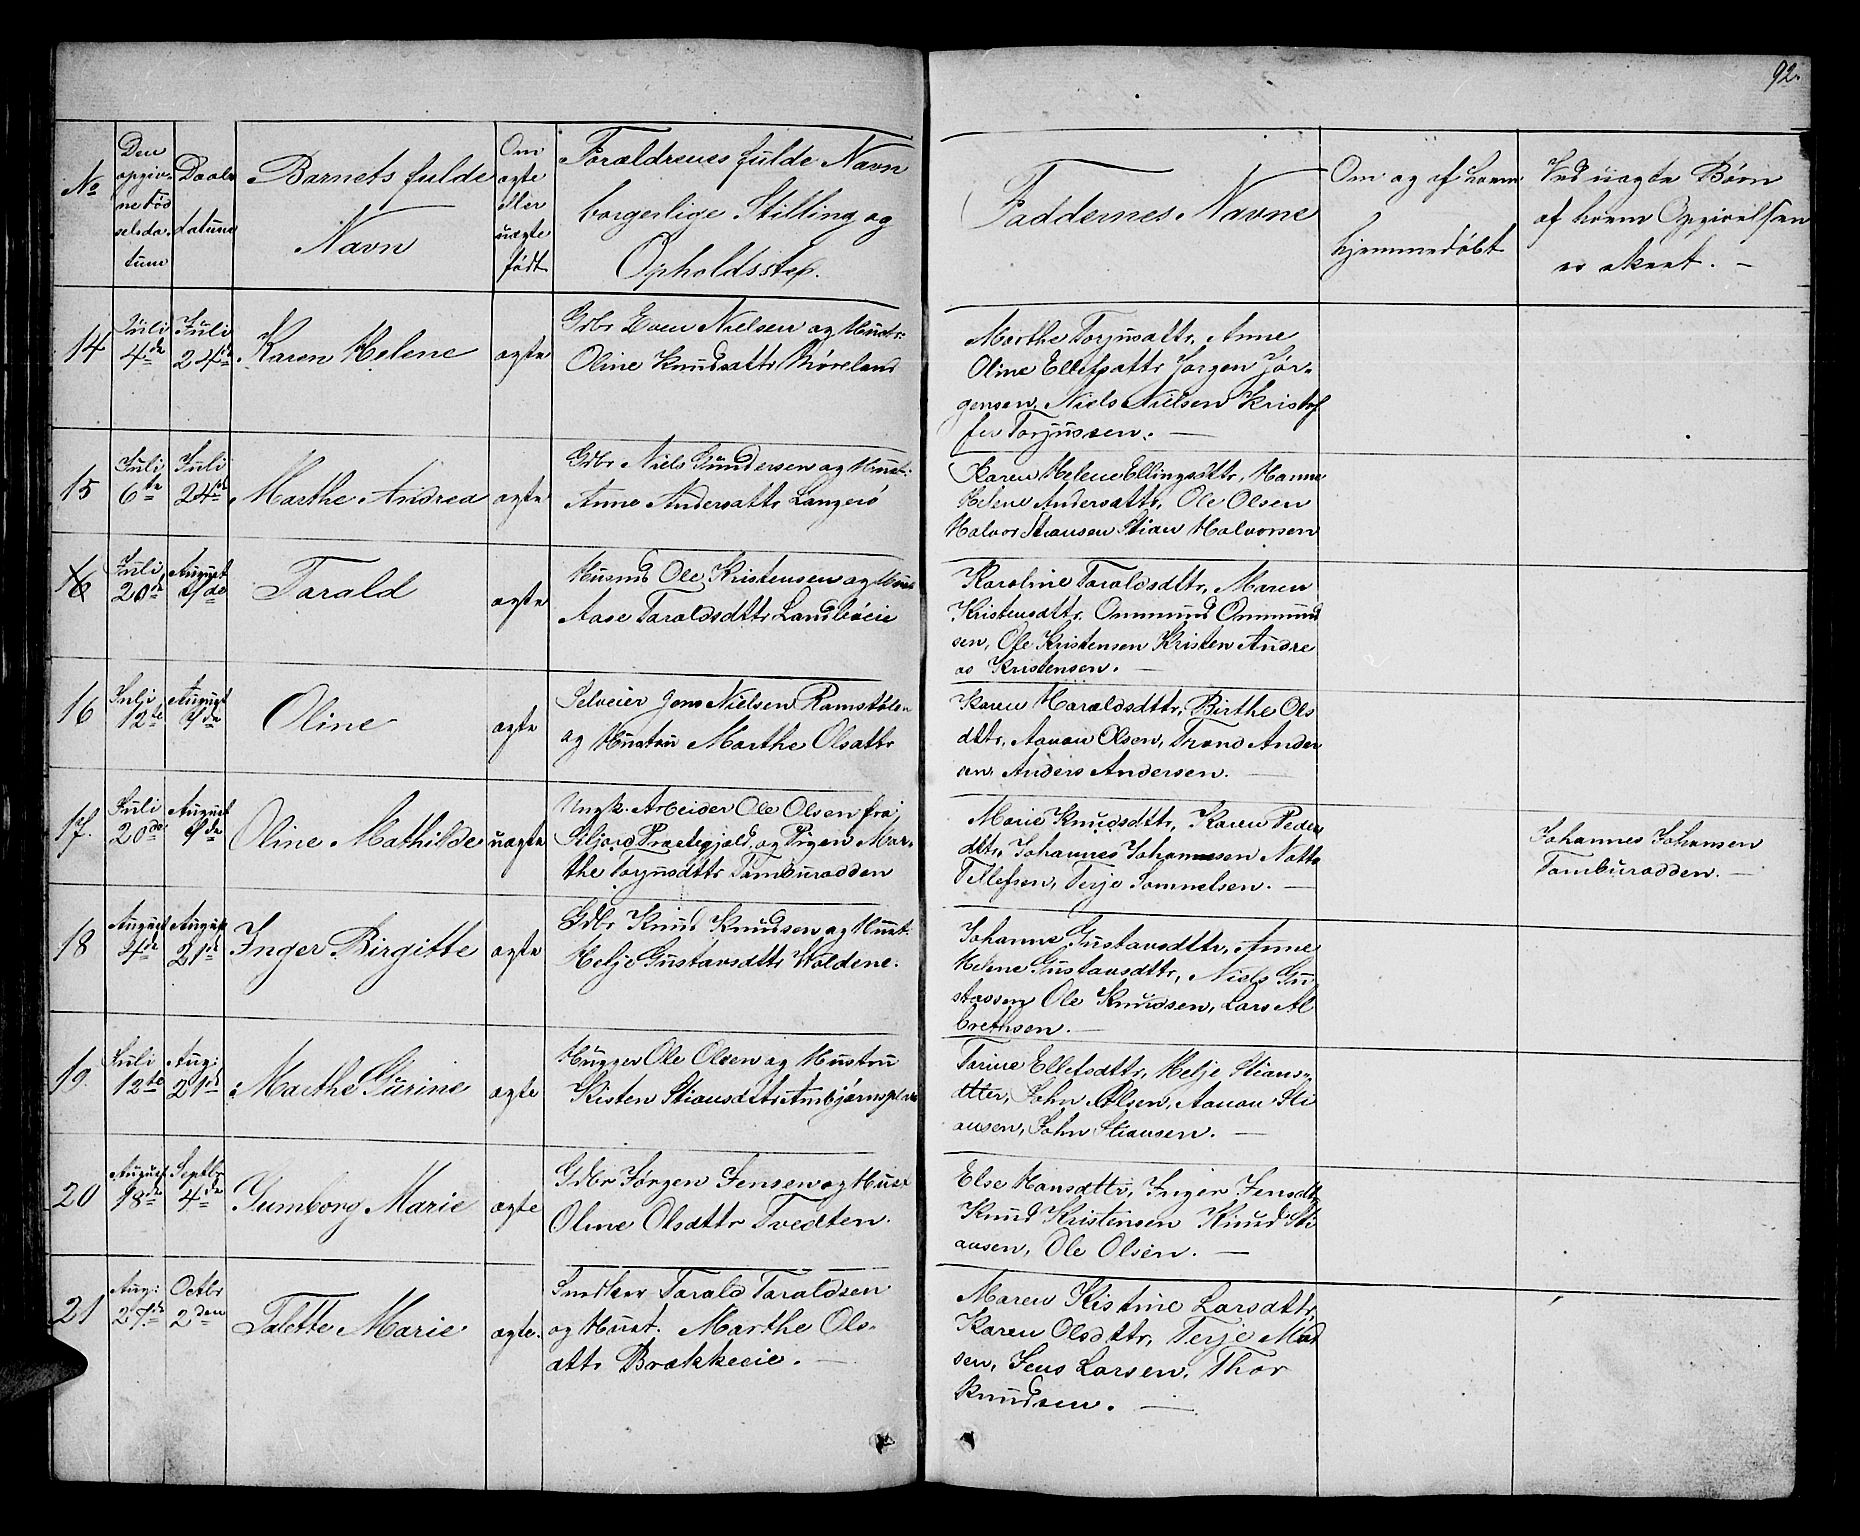 92.
No
Den opgivne Fødselsdatum
Daabsdatum
Barnets fulde Navn
Om ægte eller uægte født
Forældrenes fulde Navn borgerlige Stilling og Opholdssted.
Faddernes Navne
Om og af hvem hjemmedøbt
Ved uægte Børn af hvem Opgivelsen er skeet. —
14
Juli 4de
Juli 24de
Karen Helene
ægte
Gdbr Even Nielsen og Hustr.
Oline Knudsdttr Møreland
Marthe Torjusdttr, Anne
Oline Ellefsdttr Jørgen Jør-
gensen, Niels Nielsen Kristof
fer Torjussen. —
15
Juli 6te
Juli 24de
Marthe Andrea
ægte
Gdbr Niels Gundersen og Hust.
Anne Andersdttr Langerö
Karen Helene Ellingsdttr, Hanne
Helene Andersdttr, Ole Olsen
Halvor Stiansen Stian Halvorsen
16
Juli 20de
August 7de
Tarald
ægte
Husmd Ole Kristensen og Hust
Aase Taraldsdttr Landböeie
Karoline Taraldsdttr, Maren
Kristensdttr. Ommund Ommund
sen, Ole Kristensen Kristen Andre
as Kristensen. —
16
Juli 12te
August 7de
Oline
ægte
Selveier Jens Nielsen Ramstölen
og Hustru Marthe Olsdttr
Karen Haraldsdttr, Birthe Ols
dttr, Aanon Olsen, Trond Ander
sen, Anders Andersen. —
17.
Juli 20de
August 7de
Oline Mathilde
uægte
Ungk. Arbeider Ole Olsen fra
Siljord Præstegjæld, og Pigen Mar-
the Torjusdttr Tamburodden
Marie Knudsdttr, Karen Peder
dttr, Johannes Johannesen Notto
Tellefsen, Terje Somnelsen. —
Johannes Johansen
Tamburodden. —
18
August 4de
August 21de
Inger Birgitte
ægte
Gdbr Knud Knudsen og Hust.
Helje Gustavsdttr Woldene.
Johanne Gustavsdttr, Anne
Helene Gustavsdttr, Niels Gu-
stavsen Ole Knudsen, Lars Al
brethsen. —
19.
Juli 12te
Aug: 21de
Marthe Gurine
ægte
Hugger Ole Olsen og Hustru
Kisten Stiansdttr Ambjørnsplads
Tarine Ellefsdttr, Helje Stians-
dtter, John Olsen, Aanon Sti
ansen, John Stiansen. —
20
August 18de
Septbr 4de
Gumborg Marie
ægte
Gdbr Jørgen Jensen og Hust
Oline Olsdttr Tvedten.
Else Hansdttr, Inger Jensdtt
Knud Kristensen Knud Sti
ansen, Ole Olsen. —
21
Aug: 27de
Octbr 2den
Talette Marie
ægte.
Snedker Tarald Taraldsen
og Hust. Marthe Ols-
dttr Brækkeeie. —
Maren Kistine Larsdttr,
Karen Olsdttr, Terje Mad
sen, Jens Larsen, Thor
Knudsen. —